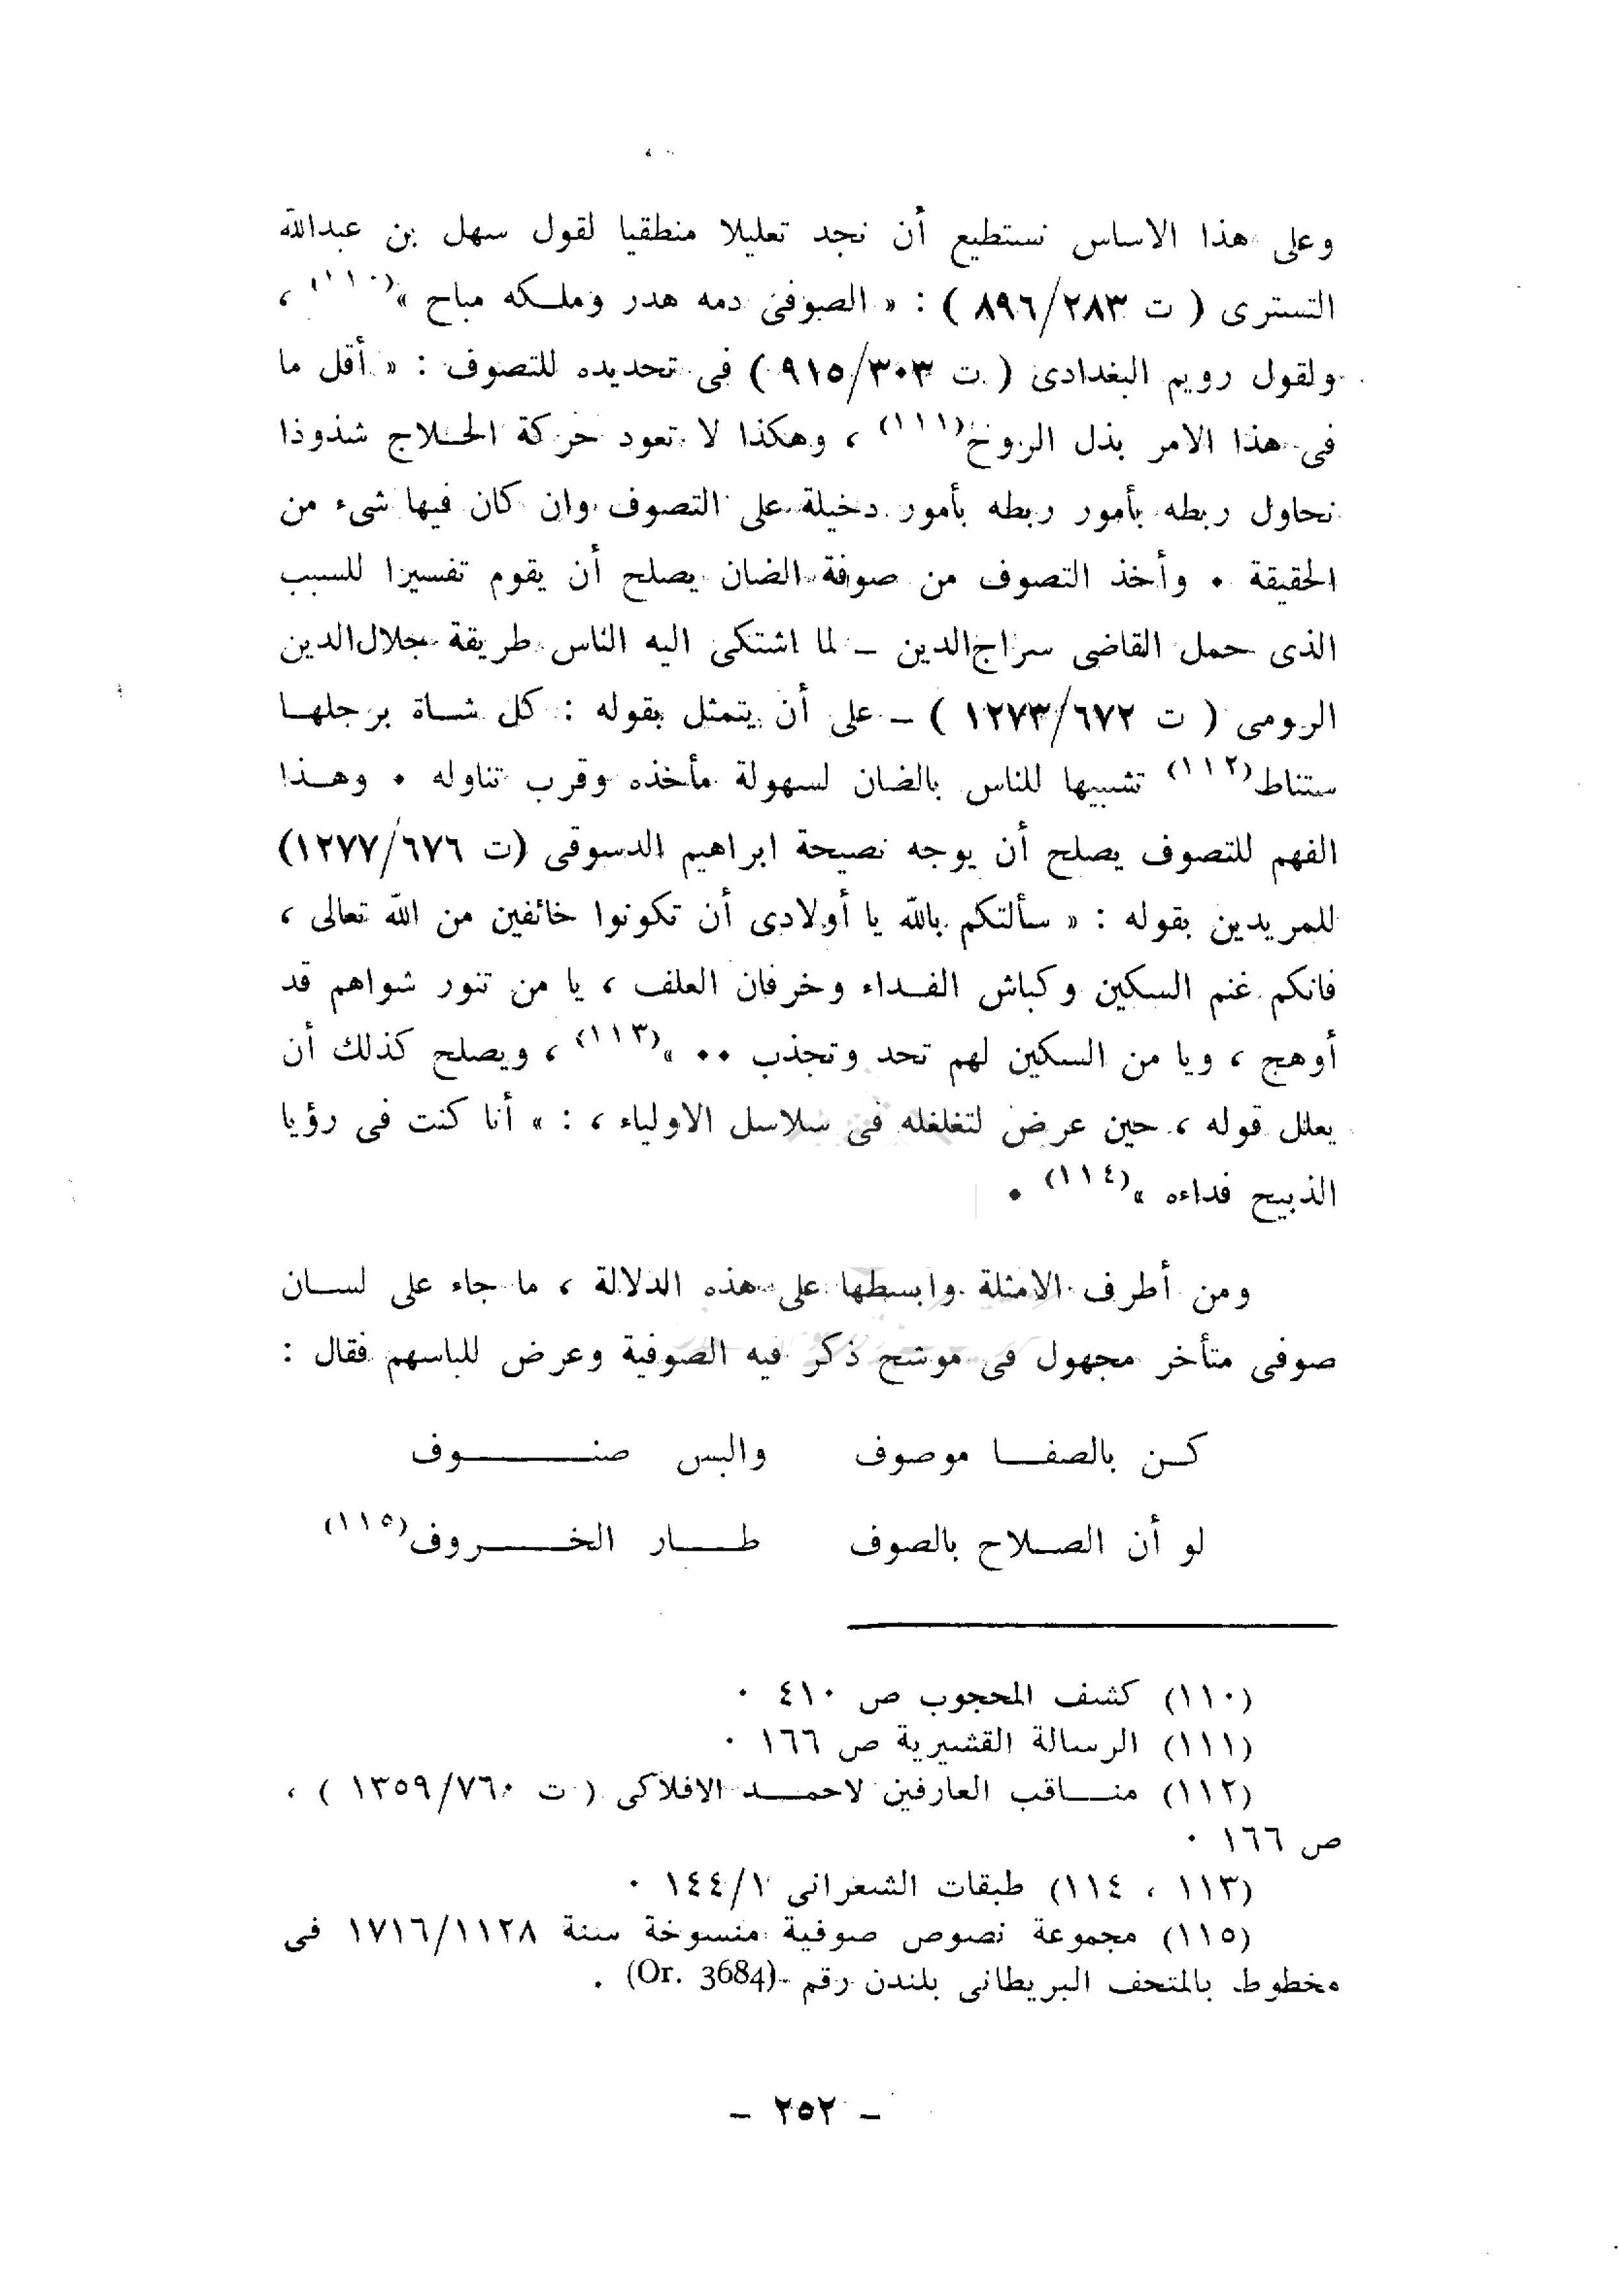 وعلى هذا الاساس نستطيع أن نجد تعليلا منطقيا لقول سهل بن عبدالله
التسترى ( ت ٨٩٦/٢٨٣ ) : « الصوفى دمه هدر وملكه مباح »(١١٠) ،
ولقول رويم البغدادى ( ت ٩١٥/٣٠٣ ) فى تحديده للتصوف : « أقل ما
فى هذا الامر بذل الروح(١١١) ، وهكذا لا تعود حركة الحلاج شذوذا
نحاول ربطه بأمور ربطه بأمور دخيلة على التصوف وان كان فيها شىء من
الحقيقة ٠ وأخذ التصوف من صوفة الضان يصلح أن يقوم تفسيرا للسبب
الذى حمل القاضى سراج الدين – لما اشتكى اليه الناس طريقة جلال الدين
الرومى ( ت ١٢٧٣/٦٧٢ ) – على أن يتمثل بقوله : كل شاة برجلها
ستناط(١١٢) تشبيها للناس بالضان لسهولة مأخذه وقرب تناوله ٠ وهذا
الفهم للتصوف يصلح أن يوجه نصيحة ابراهيم الدسوقى (ت ١٢٧٧/٦٧٦)
للمريدين بقوله : « سألتكم بالله يا أولادى أن تكونوا خائفين من الله تعالى ،
فانكم غنم السكين وكباش الفداء وخرفان العلف ، يا من تنور شواهم قد
أوهج ، ويا من السكين لهم تحد وتجذب ٠٠ »(١١٣) ، ويصلح كذلك أن
يعلل قوله ، حين عرض لتغلغله فى سلاسل الاولياء ، : « أنا كنت فى رؤيا
الذبيح فداءه »(١١٤) ٠
ومن أطرف الامثلة وابسطها على هذه الدلالة ، ما جاء على لسان
صوفى متأخر مجهول فى موشح ذكر فيه الصوفية وعرض للباسهم فقال :
كن بالصفا موصوف والبس صنوف
لو أن الصلاح بالصوف طار الخروف(١١٥)
(١١٠) كشف المحجوب ص ٤١٠ ٠
(١١١) الرسالة القشيرية ص ١٦٦ ٠
(١١٢) مناقب العارفين لاحمد الافلاكى ( ت ١٣٥٩/٧٦٠ ) ،
ص ١٦٦ ٠
(١١٣ ، ١١٤) طبقات الشعرانى ١٤٤/١ ٠
(١١٥) مجموعة نصوص صوفية منسوخة سنة ١٧١٦/١١٢٨ فى
مخطوط بالمتحف البريطانى بلندن رقم (Or. 3684) .
– ٢٥٢ –